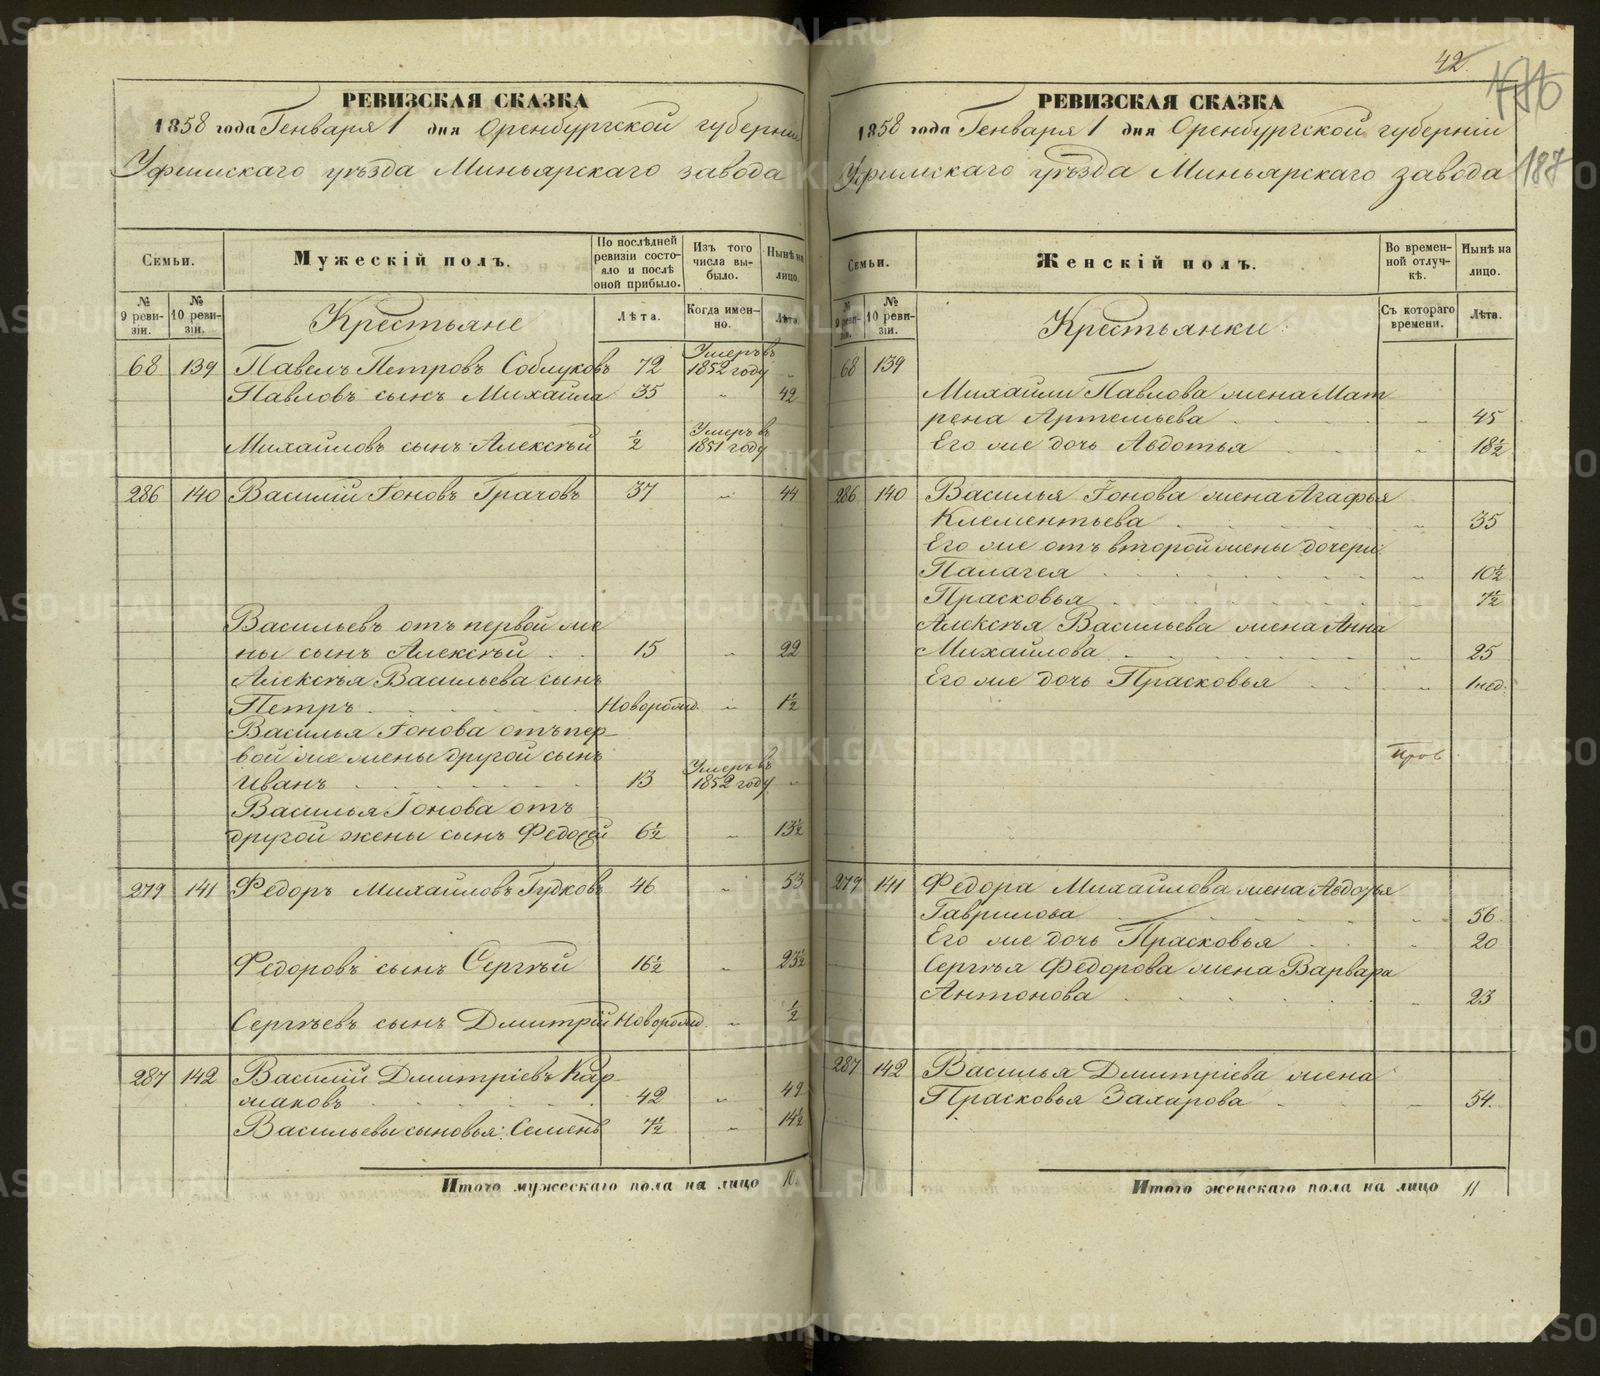 42.
187
РЕВИЗСКАЯ СКАЗКА
1858 года Генваря 1 дня Оренбургской губерніи
Уфимскаго уѣзда Миньярскаго завода
Семьи.
Мужескій полъ.
По послѣдней ревизіи состояло и послѣ оной прибыло.
Изъ того числа выбыло.
Нынѣ на лицо.
№ 9 ревизіи.
№ 10 ревизіи.
Крестьяне
Лѣта.
Когда именно.
Лѣта.
68 139 Павелъ Петровъ 72 Умеръ въ 1852 году
Павловъ сынъ Михайла 35 42
Михайловъ сынъ Алексѣй ½ Умеръ въ 1851 году
286 140 Василій Іоновъ Грачовъ 37 44
Васильевъ отъ первой же
ны сынъ Алексѣй 15 22
Алексѣя Васильева сынъ
Петръ Новорожд. 1½
Василья Іонова отъ пер
вой же жены другой сынъ
Иванъ 13 Умеръ въ 1852 году
Василья Іонова отъ
другой жены сынъ Федосей 6½ 13½
279 141 Федоръ Михайловъ Гудковъ 46 53
Федоровъ сынъ Сергѣй 16½ 23½
Сергѣевъ сынъ Дмитрій Новорожд. ½
287 142 Василій Дмитріевъ Кар
маковъ 42 49
Васильевы сыновья: Семенъ 7½ 14½
Итого мужескаго пола на лицо 10
РЕВИЗСКАЯ СКАЗКА
1858 года Генваря 1 дня Оренбургской губерніи
Уфимскаго уѣзда Миньярскаго завода
Семьи.
Женскій полъ.
Во временной отлучкѣ.
Нынѣ на лицо.
№ 9 ревизіи.
№ 10 ревизіи.
Крестьянки:
Съ котораго времени.
Лѣта.
68 139
Михайли Павлова жена Мат
рена Артемьева 45
Его же дочь Авдотья 18½
286 140 Василья Іонова жена Агафья
Клементьева 35
Его же отъ второй жены дочери:
Палагея 10½
Прасковья 7½
Алексѣя Васильева жена Анна
Михайлова 25
Его же дочь Прасковья 1 нед.
279 141 Федора Михайлова жена Авдотья
Гаврилова 56
Его же дочь Прасковья 20
Сергѣя Федорова жена Варвара
Антонова 23
287 142 Василья Дмитріева жена
Прасковья Захарова 54.
Итого женскаго пола на лицо 11
METRIKI.GASO-URAL.RU